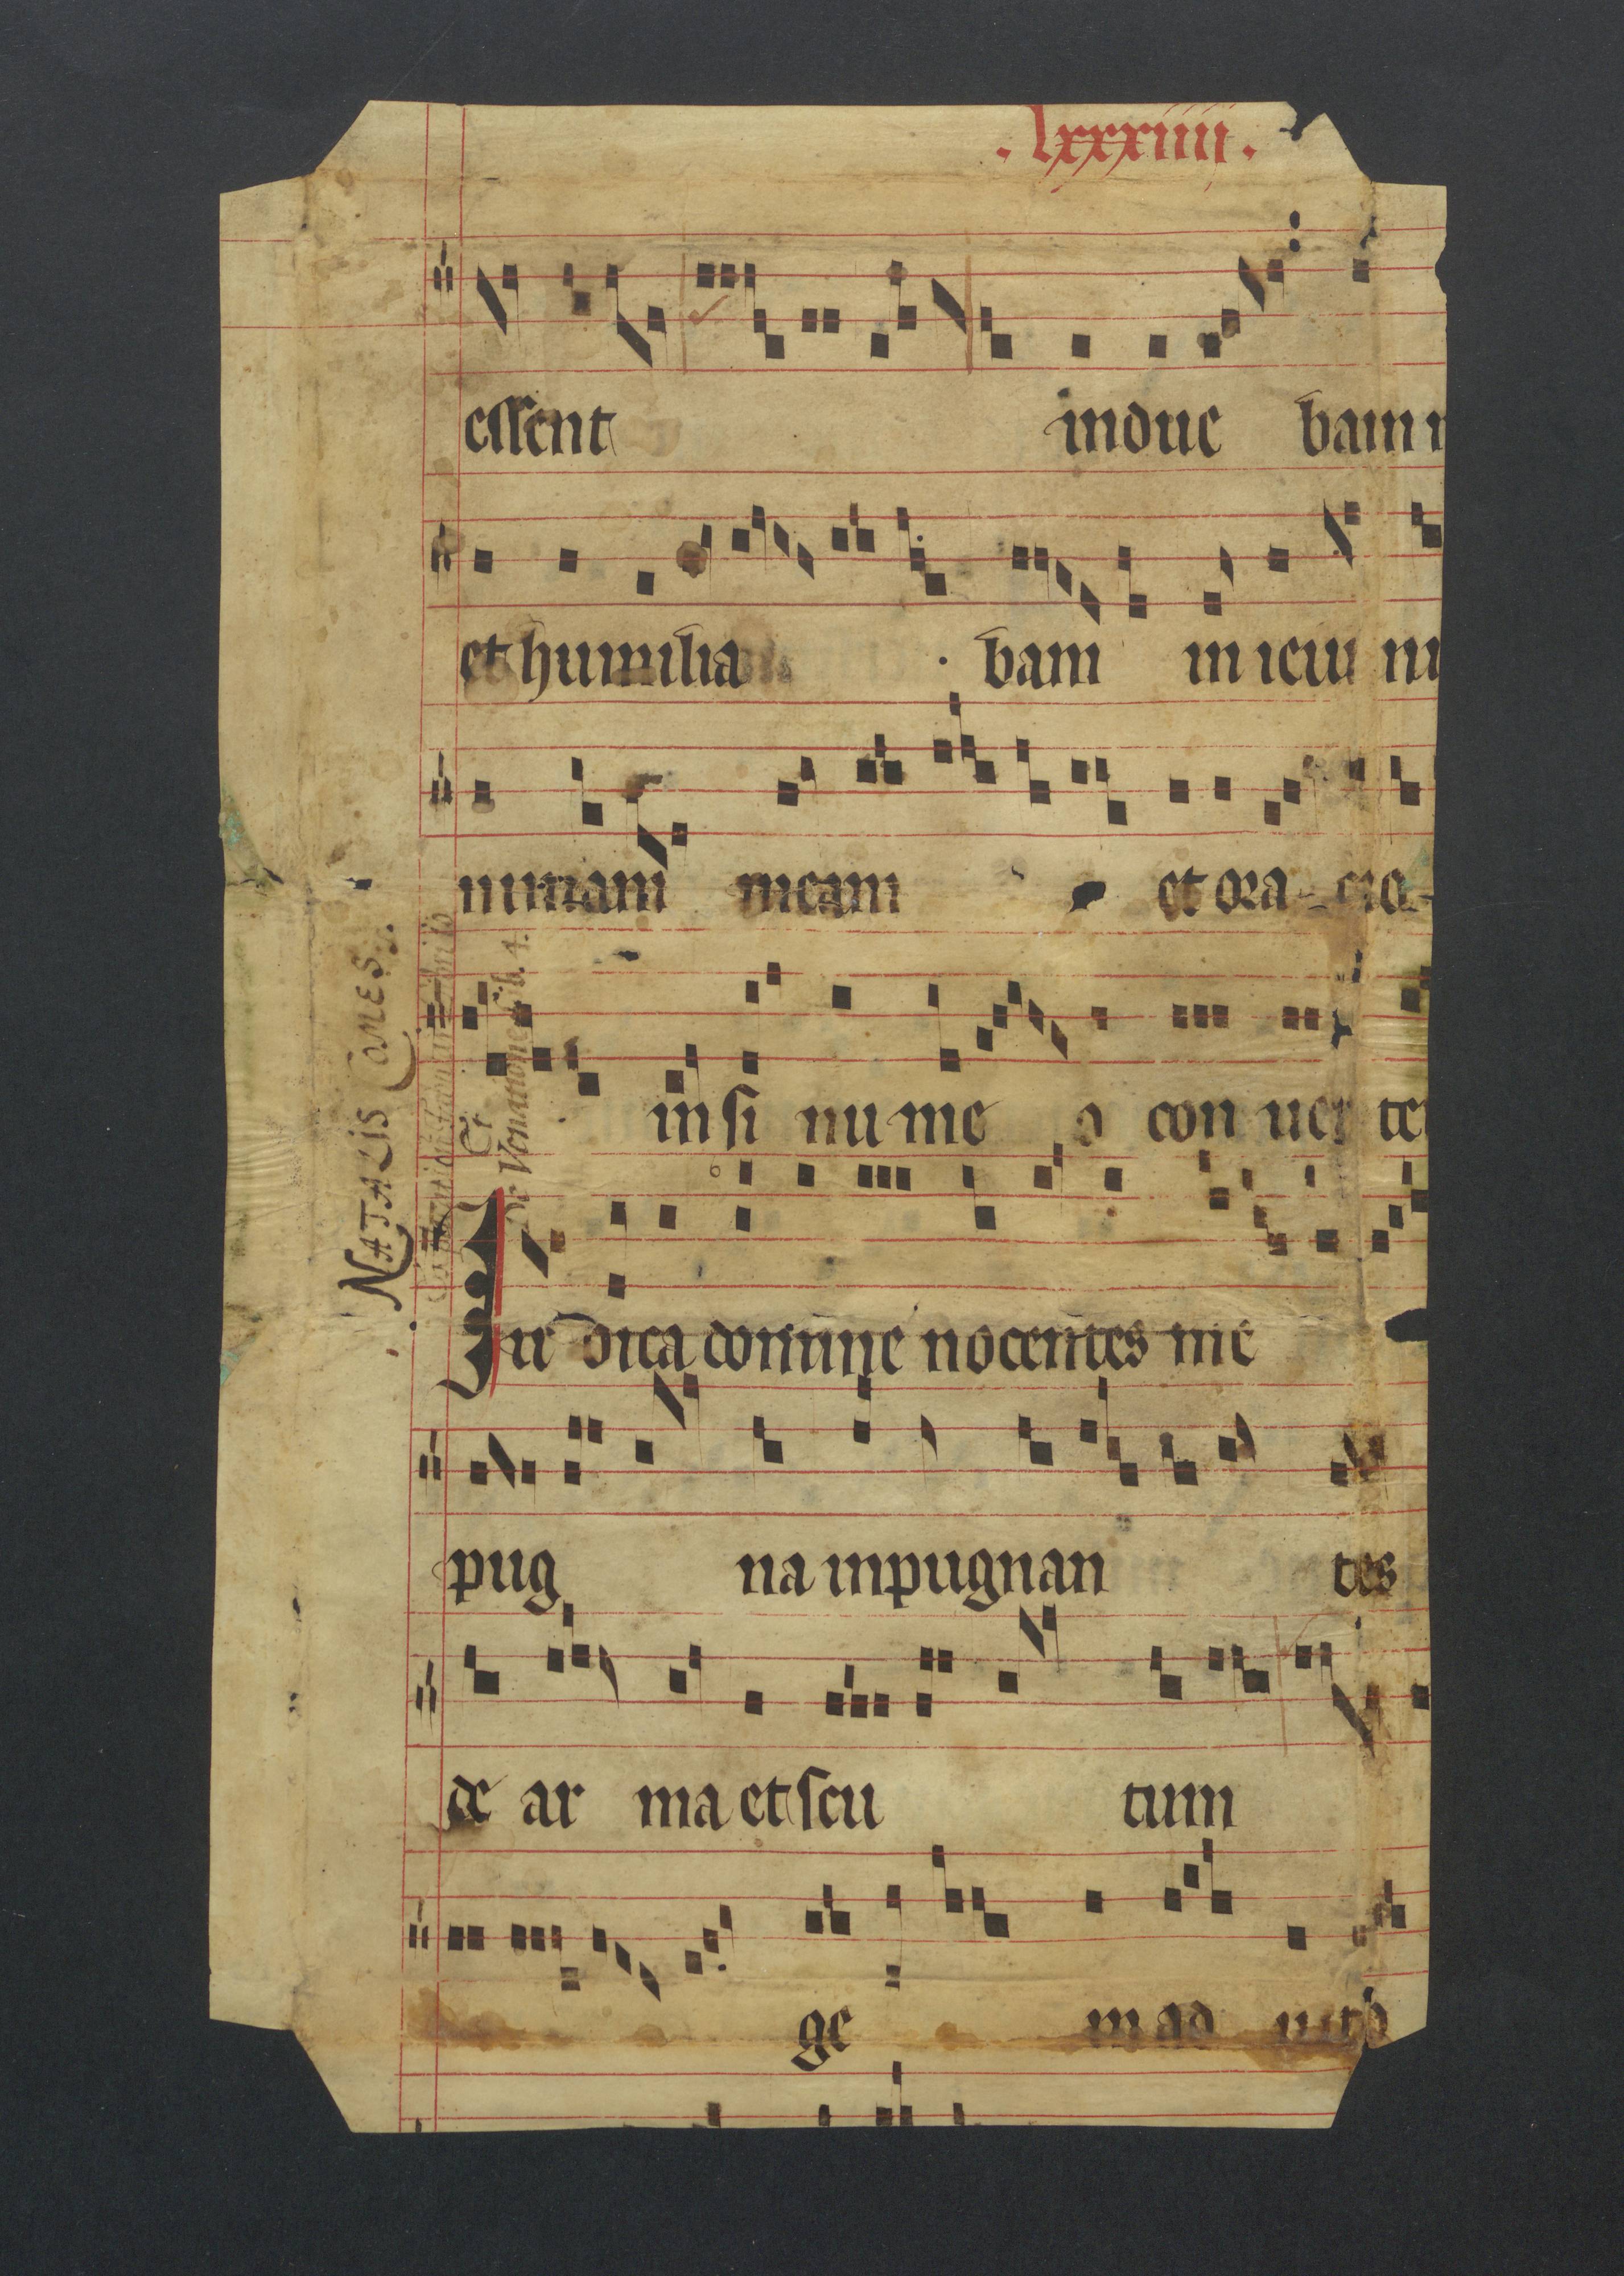 . lxxxiiii .
essent indue bam
et humilia bam in ieiu ni
animam meam et ora - cio -
in si nu me o con uer te
Iu dica domine nocentes me
pug na inpugnan tes
de ar ma et scu tum
ge in ad iuto
NATALIS COMES
Et
De Venatione Lib. 4.